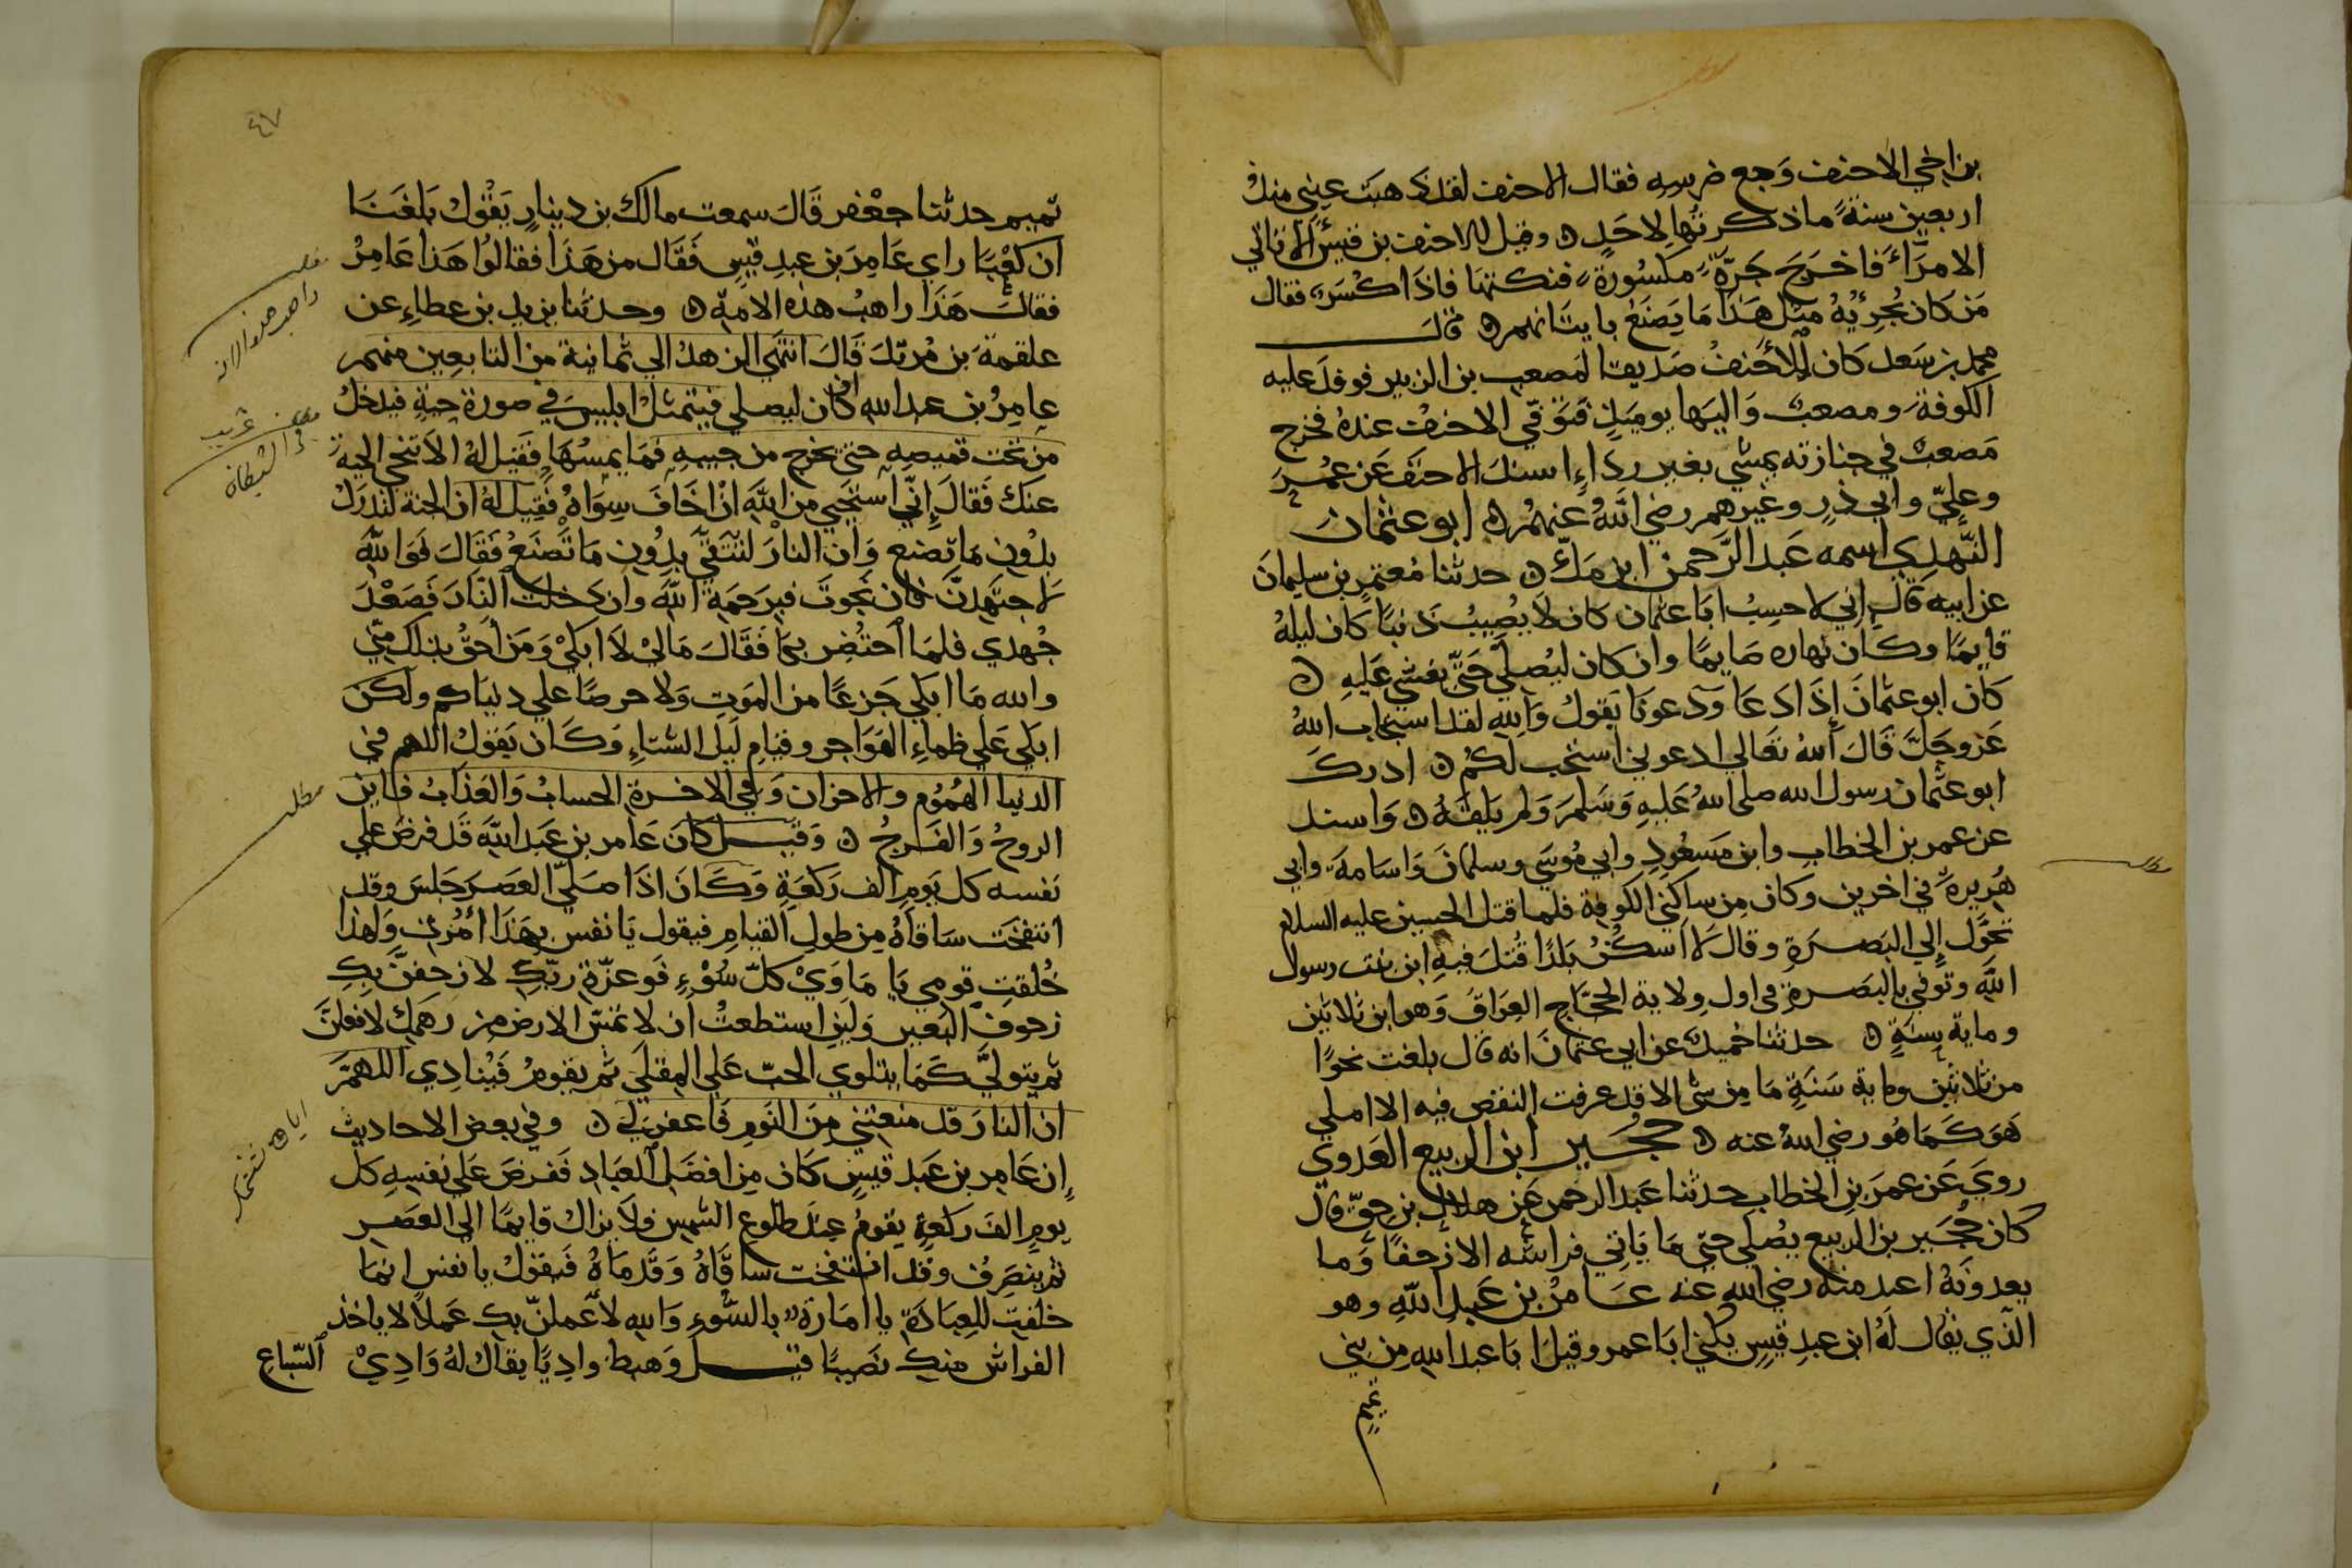 بن اخي الاحنف وَجع ضرسه فقال الاحنف لقد ذهبَت عيني منذُ
اربعين سنةً ما ذكرتُها لاحَدٍ ه وقيل للاحنف بن قيس الا تاتي
الامرَاءَ فاخرَجَ جَرّةً مكسُورةً فنكتها فاذا كُسَرٌ فقال
مَن كان يُجزِئهُ مِثل هَذا مَا يَصنَعُ باتيانهم ه قال
محمد بن سَعد كان الاحنفُ صَديقا لمَصعب بن الزبير فوفدَ عليه
الكوفةَ ومصعبٌ وَاليها يوميذٍ فتوَفّي الاحنفُ عندهُ فخرج
مَصعبٌ في جنازته يمشي بغير ردَاءٍ اسندَ الاحنفَ عَن عُمرَ
وعليّ وابي ذرٍ وغيرهم رضي اللهُ عنهُم ه ابو عثمان
النّهدي اسمه عَبد الرَّحمن ابن مَلّ ه حدثنا مُعتمر بن سليمانَ
عن ابيه قال إني لاحسِبُ ابَا عثمان كان لا يُصِيبُ ذَنبًا كان ليلهُ
قايمًا وكان نهاره صَايمًا وان كان ليُصلي حَتّى يغشي عَليهِ ه
كان ابو عثمانَ إذَا دَعَا وَدَعونا يَقولُ وَاللهِ لقد استجابَ اللهُ
عَز وجَلَّ قَالَ اللهُ تعَالي ادعوني استجب لكُم ه ادرك
ابو عثمان رسول الله صلى اللهُ عَليهِ وَسَلمَ وَلم يَلقَهُ ه وَاسند
عن عمر بن الخطاب وابن مَسعُودٍ وابي مُوسَي وسلمانَ وَاسَامةَ وابي
هُريرةَ في اخرين وكان مِن ساكني الكوفة فلما قتل الحسين عليه السلام
تحَوَّل إلي البَصرَةِ وقال لا اسكنُ بَلدًا قُتلَ فيهِ ابن بنت رسول
الله وتوُفي بالبَصرة في اول وِلاية الحجّاج العِرَاقَ وَهو ابن ثلاثين
وماية سنةٍ ه حدثنا حُميدٌ عن ابي عثمانَ انه قال بلغت نحوًا
من ثلاثين وماية سَنَةٍ مَا مِن شي الا قد عرفت النقص فيه الا املي
هَوَ كَمَا هُو رضي اللهُ عنه ه حجَير ابن الربيع العَدوي
رويَ عَن عمرَ بنِ الخطاب حدثنا عَبد الرحمن عَن هلال بن حقّ قال
كان حُجَير بن الربيع يُصلي حتي مَا يَاتي فراشه الا زحفًا وَما
يعدونَهُ اعبدَ منه رضي الله عنه عَامرُ بن عَبدِ اللهِ وهو
الّذي يقال لهُ ابن عبدِ قيسٍ يكني ابَا عمرو وقيلَ ابَا عبد اللهِ مِن بني
تميم
٤٧
تميم حدثنا جعْفر قَالَ سمعت مالك بن دينارٍ يَقُولُ بَلغَنَا
ان كعْبًا راي عَامِرَ بن عبدِ قيسٍ فَقَال من هَذَا فقالوُا هَذا عَامِرُ
فقالَ هَذَا راهبُ هذه الامةِ ه وحدثنا يزيد بن عطاءٍ عن
علقمةَ بن مُرثدٍ قَالَ انتَهي الزهدُ الي ثمانية من التابعِين منهم
عامرُ بن عبد الله ان كان ليصلي فيتمثلُ ابليسُ في صورة حيةٍ فيدخلُ
من تحت قميصِهِ حتي يخرج من جيبهِ فمَا يمسُهَا فَقيل لهُ الا تنحي الحية
عنك فَقالَ إنّي اَستحيي من اللهِ انْ اخَافَ سِوَاهُ فقيل لهُ ان الجنة لتُدرَكُ
بدُون مَا تصنع وَان النارَ لتتَقيَّ بدُون مَا تَصنَعُ فقَالَ فوَاللهِ
لاجتَهِدنَّ فان نجَوتُ فبرَحمَةِ اللهِ وان دخلتُ النّارَ فبعدَ
جُهدي فلمَا احتُضِرَ بكَا فَقَالَ مَا ليْ لا ابكي وَمَن أحَقُّ بذلك مني
والله مَا ابكي جَزعًا من المَوتِ ولا حرصًا علي دنياكم ولكن
ابكي عَلي ظماءِ الهَوَاجرِ وقيَامِ لَيل الشتاءِ وَكَان يَقوْلُ اللهم في
الدنيا الهُمُوم والاحزان وَفي الاخرة الحسابُ وَالعَذَابُ فاين
الروحُ وَالفَرجُ ه وَقيل كانَ عَامر بن عَبد اللهِ قَد فرضَ علي
نفسه كل يَومٍ الف رَكعَةٍ وَكَانَ اذَا صَليّ العَصَر جَلسَ وقد
انتفخَت سَاقاهُ مِن طولِ القيَامِ فيقول يَا نفس بهَذَا اُمرتِ وَلهذا
خُلقتِ قومي يَا مَاوَيْ كلّ سُوْءٍ فَو عزّةِ ربّكِ لازحفنَّ بكِ
زحوفَ البَعيرِ وَلين استطعتُ ان لا تمسّ الارض من زهمك لافعَلنَّ
ثم يتولىَّ كَمَا يتلوي الحبّ عَلي المقلَي ثم يقومُ فَيُنادِي اللهمَّ
ان النارَ قد منعَتني مِنَ النَومِ فَاغفر لي ه وفي بعض الاحاديث
إن عَامِر بن عَبد قيسٍ كَان مِن افضلِ العبَاد ففرضَ عَلي نفسِهِ كل
يومٍ الفَ رَكعَةٍ يقومُ عندَ طلوع الشمسِ فلا يزالُ قايمًا الي العصرِ
ثم ينصَرفُ وقد انتفخت ساقاهُ وَقدمَاهُ فيَقوْلُ يا نفس انمَا
خلقتِ للعِبَادَةِ يا امارَةً بالسّوءِ وَاللهِ لاعملنّ بك عَملاً لا ياخذ
الفراش منكِ نَصيبًا قيل وَهبط واديًا يقالُ لهُ وَادِيْ السّباعِ
مطلب
راهب هذه الامة
غريب
الشيطان
مطلب